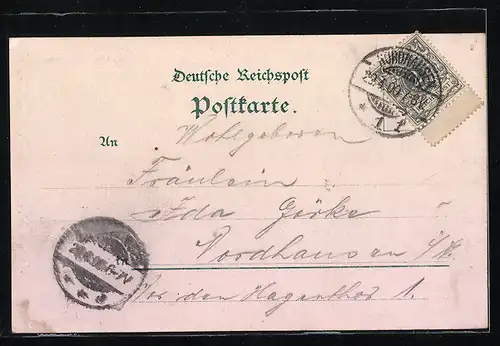 Deutsche Reichspost
Postkarte.
NORDHAUSEN
1 1
An
Wohlgeboren
Fräulein
Ida Görke
Nordhausen a/H.
Vor dem Hagenthor 1.